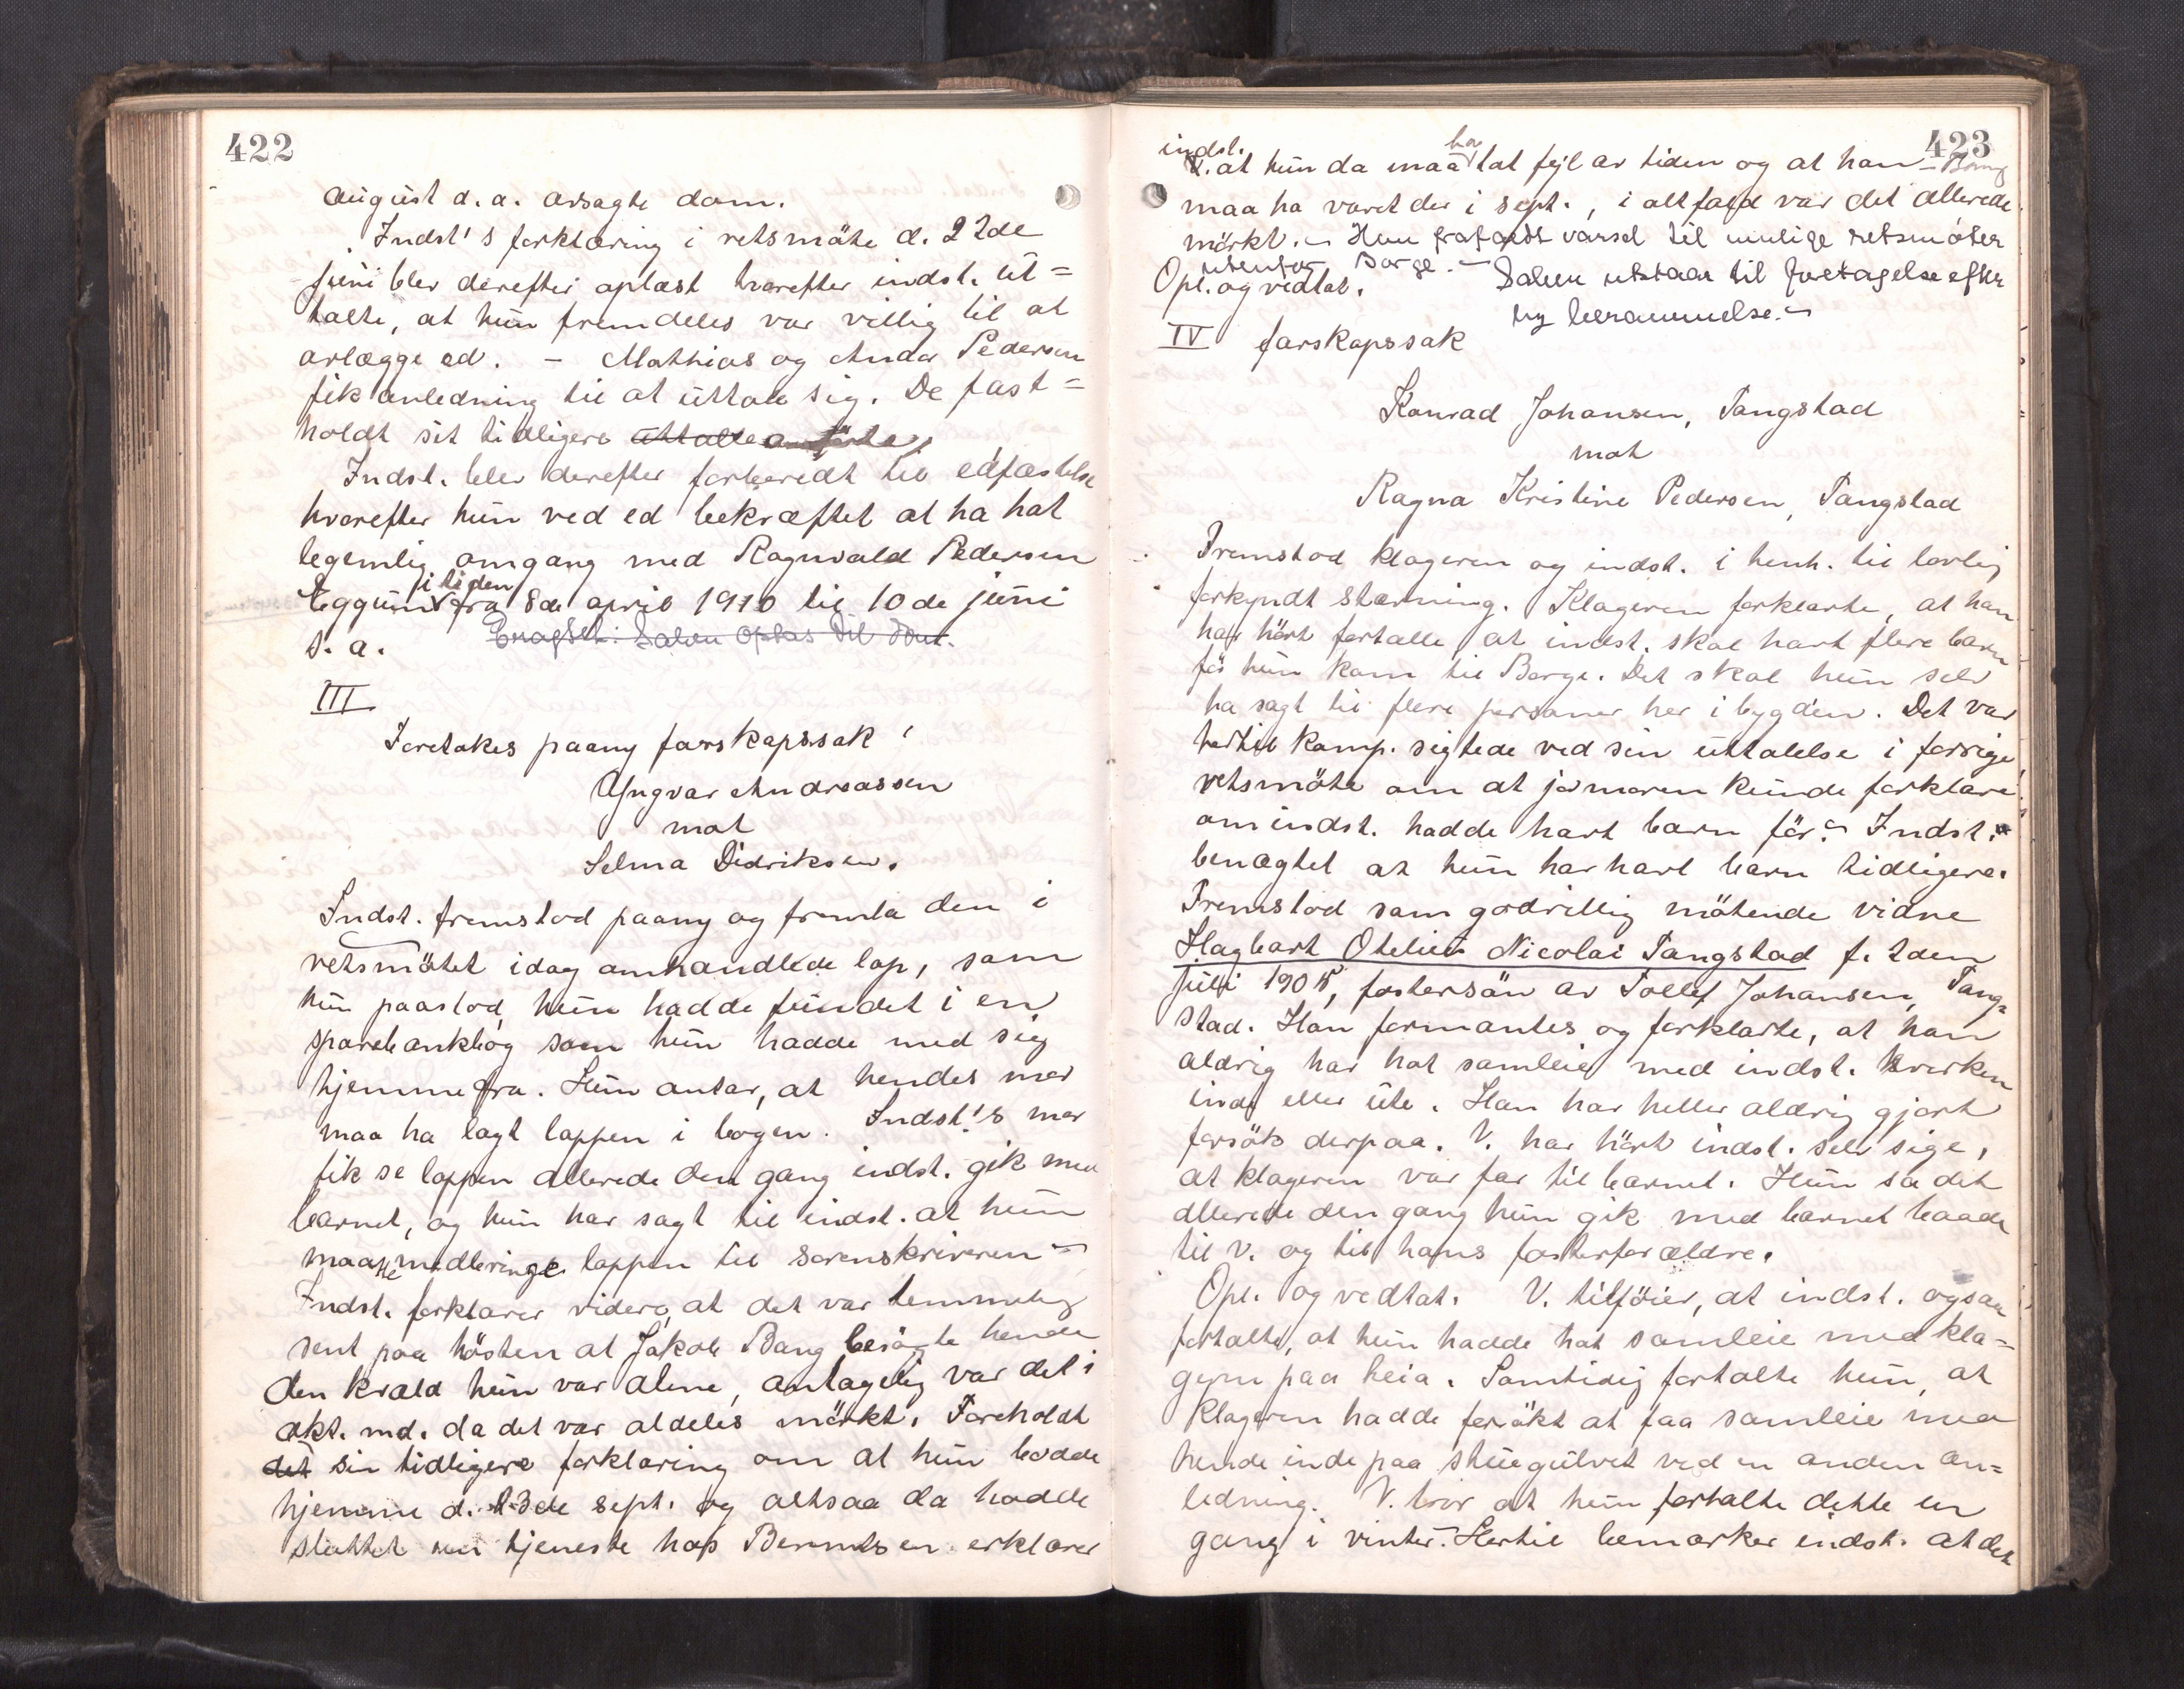 422
august d. a. avsagte dom.
Indst's forklaring i retsmöte d. 22de
juni blev derefter oplæst hvorefter indst. ut=
talte, at hun fremdeles var villig til at
avlægge ed. - Mathias og Anda Pedersen
fik anledning til at uttale sig. De fast=
holdt sit tidligere uttalte anförte.
Indst. blev derefter forberedt til edfæstelse
hvorefter hun ved ed bekræftet at ha hat
legemlig omgang med Ragnvald Pedersen
Eggum i tiden fra 8de april 1910 til 10de juni
s. a. Saken optas til dom.
III
Foretokes paany farskapssak
Yngvar Andreassen
mot
Selma Didriksen.
Indst. fremstod paany og fremla den i
retsmötet idag omhandlede lap, som
hun paastod hun hadde fundet i en
sparebankbog som hun hadde med sig
hjemmefra. Hun antar, at hendes mor
maa ha lagt lappen i bogen. Indst.'s mor
fik se lappen allerede den gang indst. gik med
barnet, og hun har sagt til indst. at hun
maatte medbringe lappen til sorenskriveren -
Indst. forklarer videre, at det var temmelig
sent paa hösten at Jakob Bang besögte hende
den kvæld hun var alene, antagelig var det i
okt. md. da det var aldeles mörkt. Foreholdt
det sin tidligere forklaring om at hun bodde
hjemme d. 23de sept. og altsaa da hadde
sluttet sin tjeneste hos Berntsen erklærer
423
indst. V. at hun da maa ha tat fejl av tiden og at han - Bang
maa ha været der i sept., i altfald var det allerede
mörkt. - Hun frafaldt varsel til mulige retsmöter
utenfor Borge. - Saken utstaar til foretagelse efter
Opl. og vedtat.
ny berammelse. -
IV farskapssak
Konrad Johansen, Tangstad
mot
Ragna Kristine Pedersen, Tangstad
Fremstod klageren og indst. i henh. til lovlig
forkyndt stævning. Klageren forklarte, at han
har hört fortalle at indst. skal havt flere barn
för hun kom til Borge. Det skal hun selv
ha sagt til flere personer her i bygden. Det var
hertil komp. sigtede ved sin uttalelse i forrige
retsmöte om at jormoren kunde forklare
om indst. hadde havt barn för. - Indst.
benegtet at hun har havt barn tidligere.
Fremstod som godvillig mötende vidne
Hagbart Otelius Nicolai Tangstad f. 2den
juli 1905, fostersön av Tollef Johansen, Tang=
stad. Han formantes og forklarte, at han
aldrig har hat samleie med indst. hverken
inde eller ute. Han har heller aldrig gjort
forsök derpaa. V. har hört indst. selv sige,
at klageren var far til barnet. Hun sa det
allerede den gang hun gik med barnet baade
til V. og til hans fosterforældre.
Opl. og vedtat. V. tilföier, at indst. ogsaa
fortalte, at hun hadde hat samleie med kla=
geren paa heia. Samtidig fortalte hun, at
klageren hadde forsökt at faa samleie med
hende inde paa stuegulvet ved en anden an=
ledning. V. tror at hun fortalte dette en
gang i vinter. Hertil bemærker indst. at det